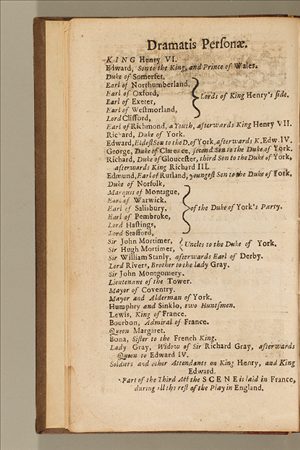 Dramatis Personæ.
KING Henry VI.
Edward, Son to the King, and Prince of Wales.
Duke of Somerset,
Earl of Northumberland,
Earl of Oxford,
Earl of Exeter,
Earl of Westmorland,
Lord Clifford,
Lords of King Henry's side.
Earl of Richmond, a Youth, afterwards King Henry VII.
Richard, Duke of York.
Edward, Eldest Son to the D. of York, afterwards K. Edw. IV.
George, Duke of Clarence, second Son to the Duke of York.
Richard, Duke of Gloucester, third Son to the Duke of York,
afterwards King Richard III.
Edmund, Earl of Rutland, youngest Son to the Duke of York.
Duke of Norfolk,
Marques of Montague,
Earl of Warwick,
Earl of Salisbury,
Earl of Pembroke,
Lord Hastings,
Lord Stafford,
of the Duke of York's Party.
Sir John Mortimer,
Sir Hugh Mortimer,
Uncles to the Duke of York.
Sir William Stanly, afterwards Earl of Derby.
Lord Rivers, Brother to the lady Gray.
Sir John Montgomery.
Lieutenant of the Tower.
Mayor of Coventry.
Mayor and Alderman of York.
Humphry and Sinklo, two Huntsmen.
Lewis, King of France.
Bourbon, Admiral of France.
Queen Margiret.
Bona, Sister to the French King.
Lady Gray, Widow of Sir Richard Gray, afterwards
Queen to Edward IV.
Soldiers and other Attendants on King Henry, and King
Edward.
Part of the Third Act the SCENE is laid in France,
during all the rest of the Play in England.